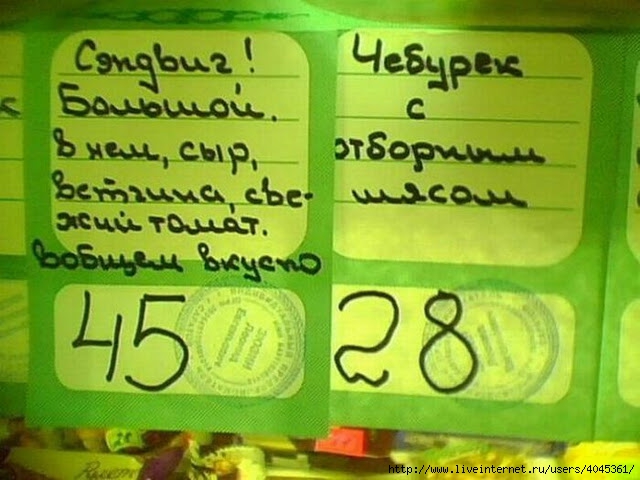 Сэндвиг!
Большой.
В нем, сыр,
ветчина, све-
жий томат.
вобщем вкусно
45
Чебурек
с
отборным
мясом
28
http://www.liveinternet.ru/users/4045361/